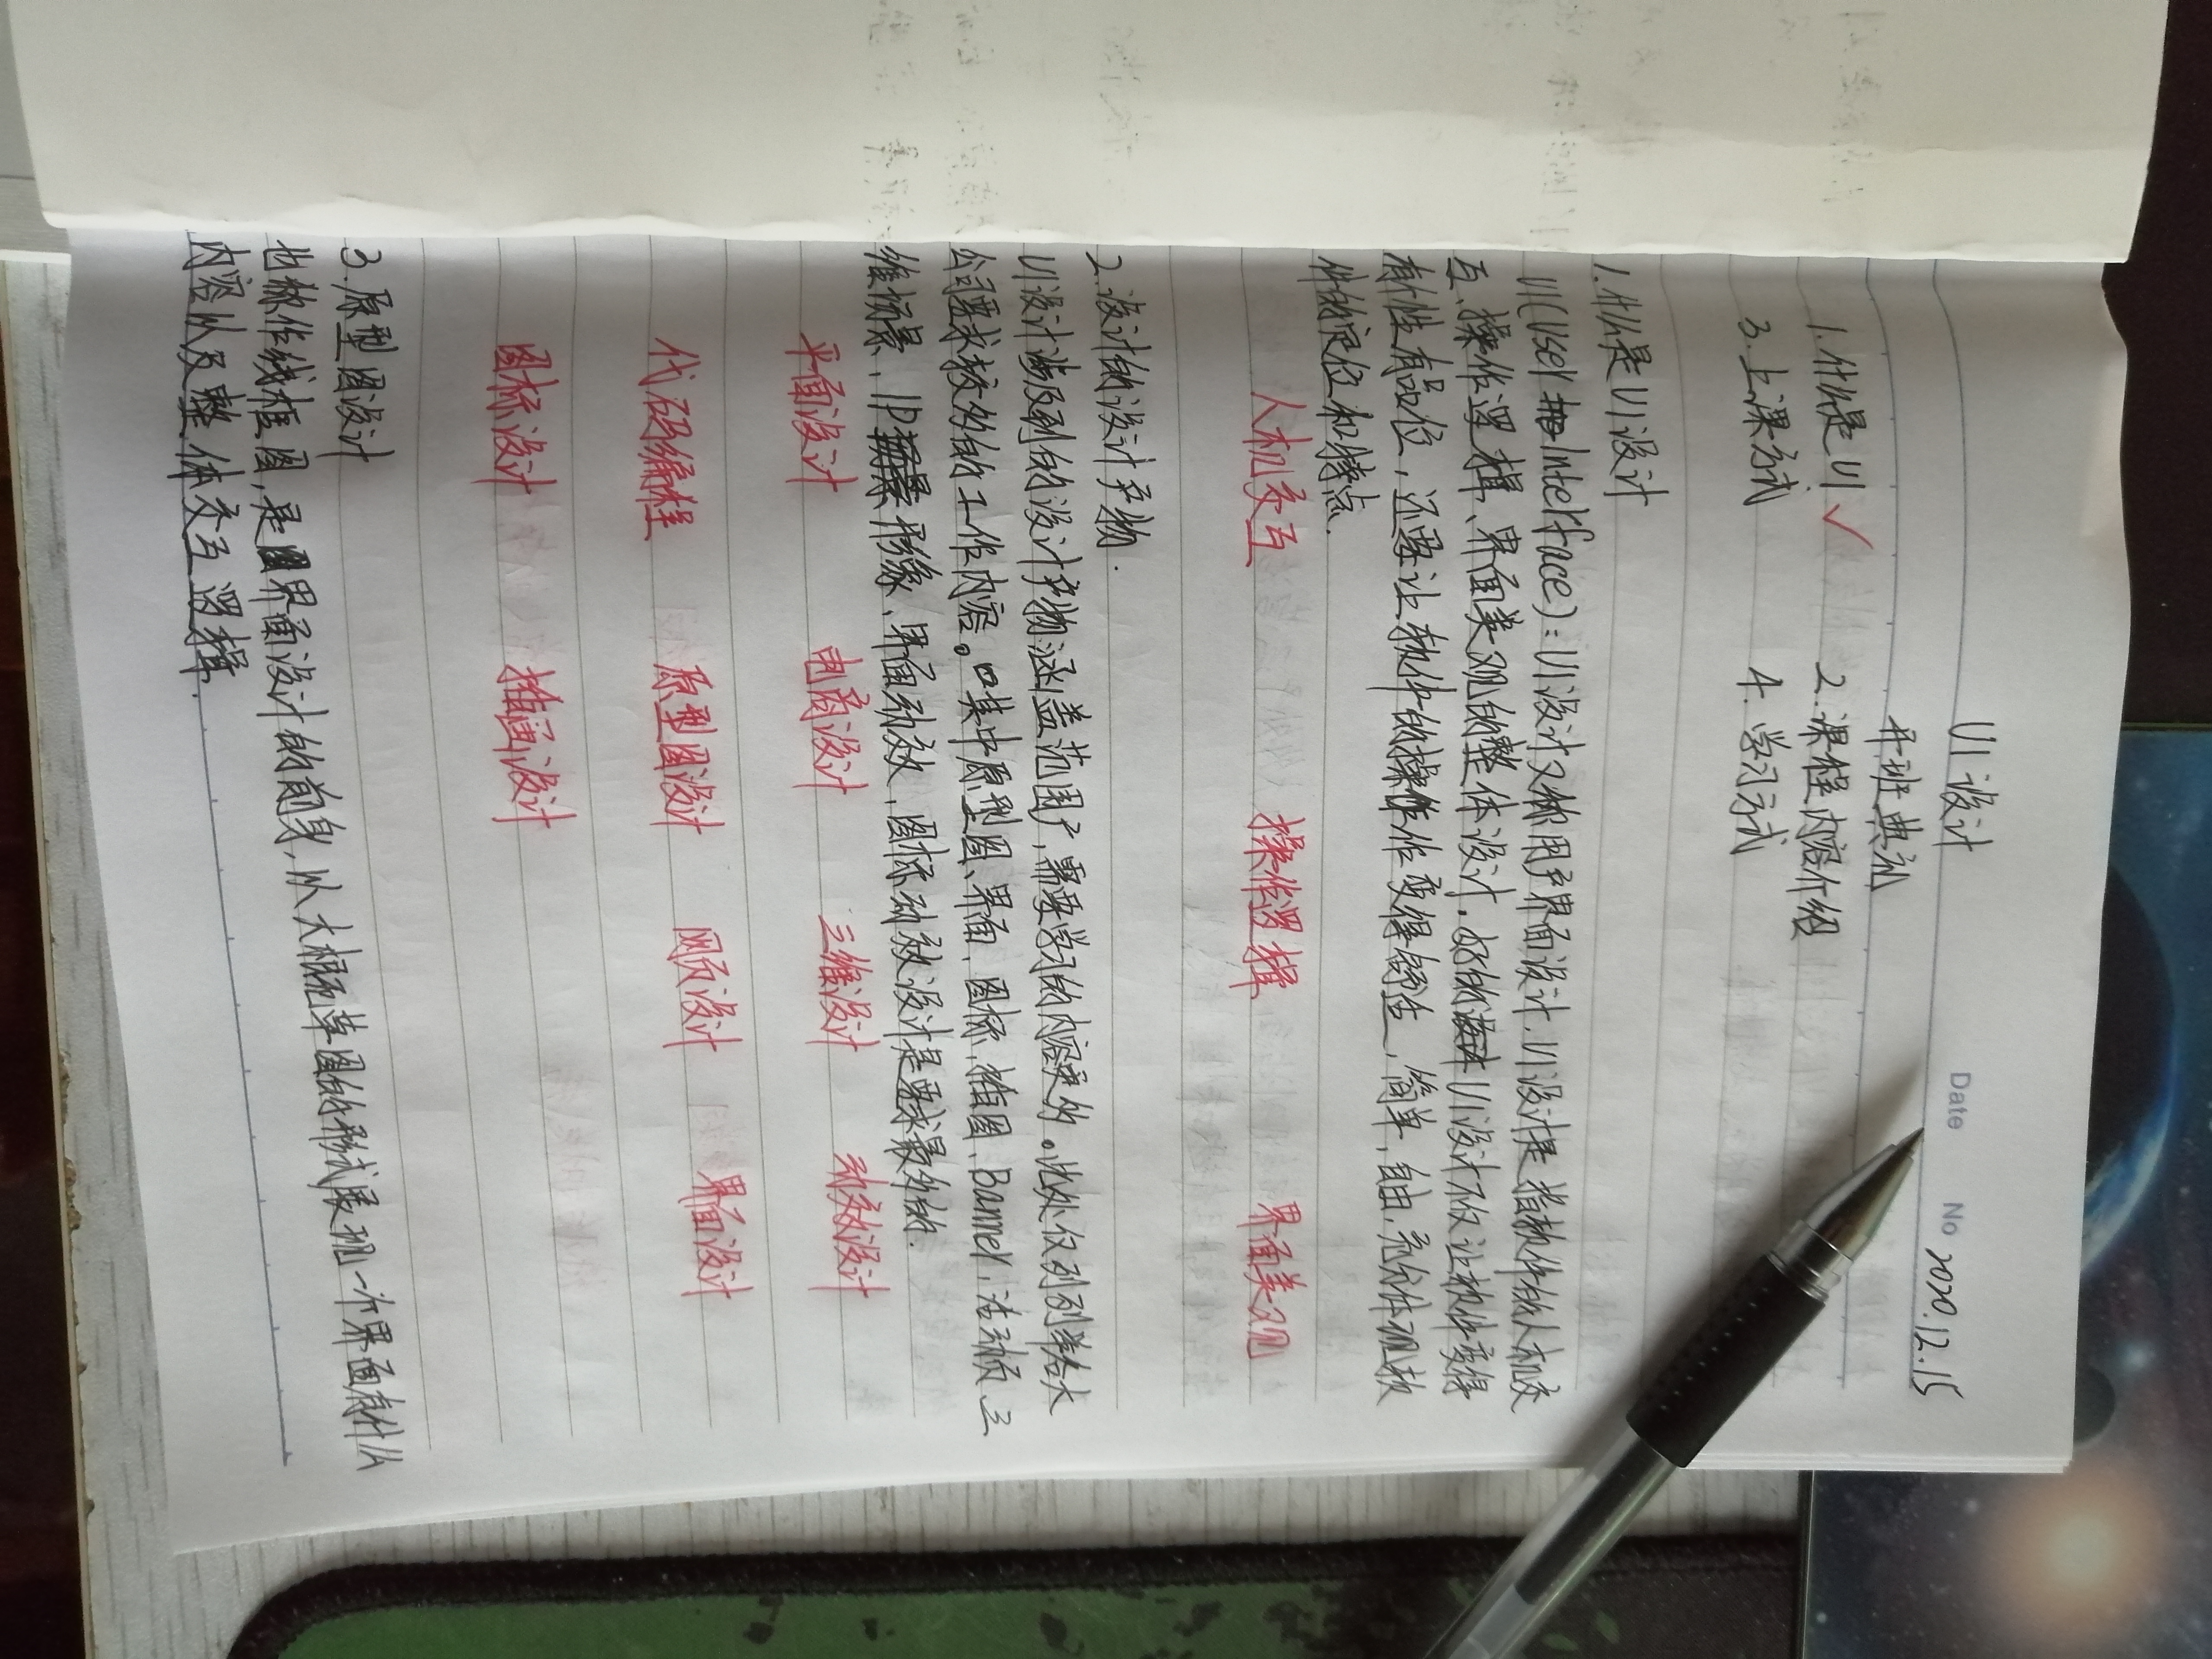 Date No 2020.12.15
UI设计
开班典礼
1.什么是UI✓ 2.课程内容介绍
3.上课方式 4.学习方式
1.什么是UI设计
UI(User Interface):UI设计又称用户界面设计.UI设计是指软件的人机交
互、操作逻辑、界面美观的整体设计.好的UI设计不仅让软件变得
有个性有品位,还要让软件的操作变得舒适、简单,自由,充分体现软
件的定位和特点.
人机交互 操作逻辑 界面美观
2.设计的设计产物.
UI设计涉及到的设计产物涵盖范围广,需要学习的内容更多。此处仅列列举各大
公司要求较多的工作内容。其中原型图、界面、图标、插图、Banner、活动页、三
维场景、IP形象、界面动效、图标动效设计是要求最多的.
平面设计 电商设计 三维设计 动效设计
代码编程 原型图设计 网页设计 界面设计
图标设计 插画设计
3.原型图设计
也称作线框图,是界面设计的前身,从大概草图的形式展现一个界面有什么
内容以及整体交互逻辑.